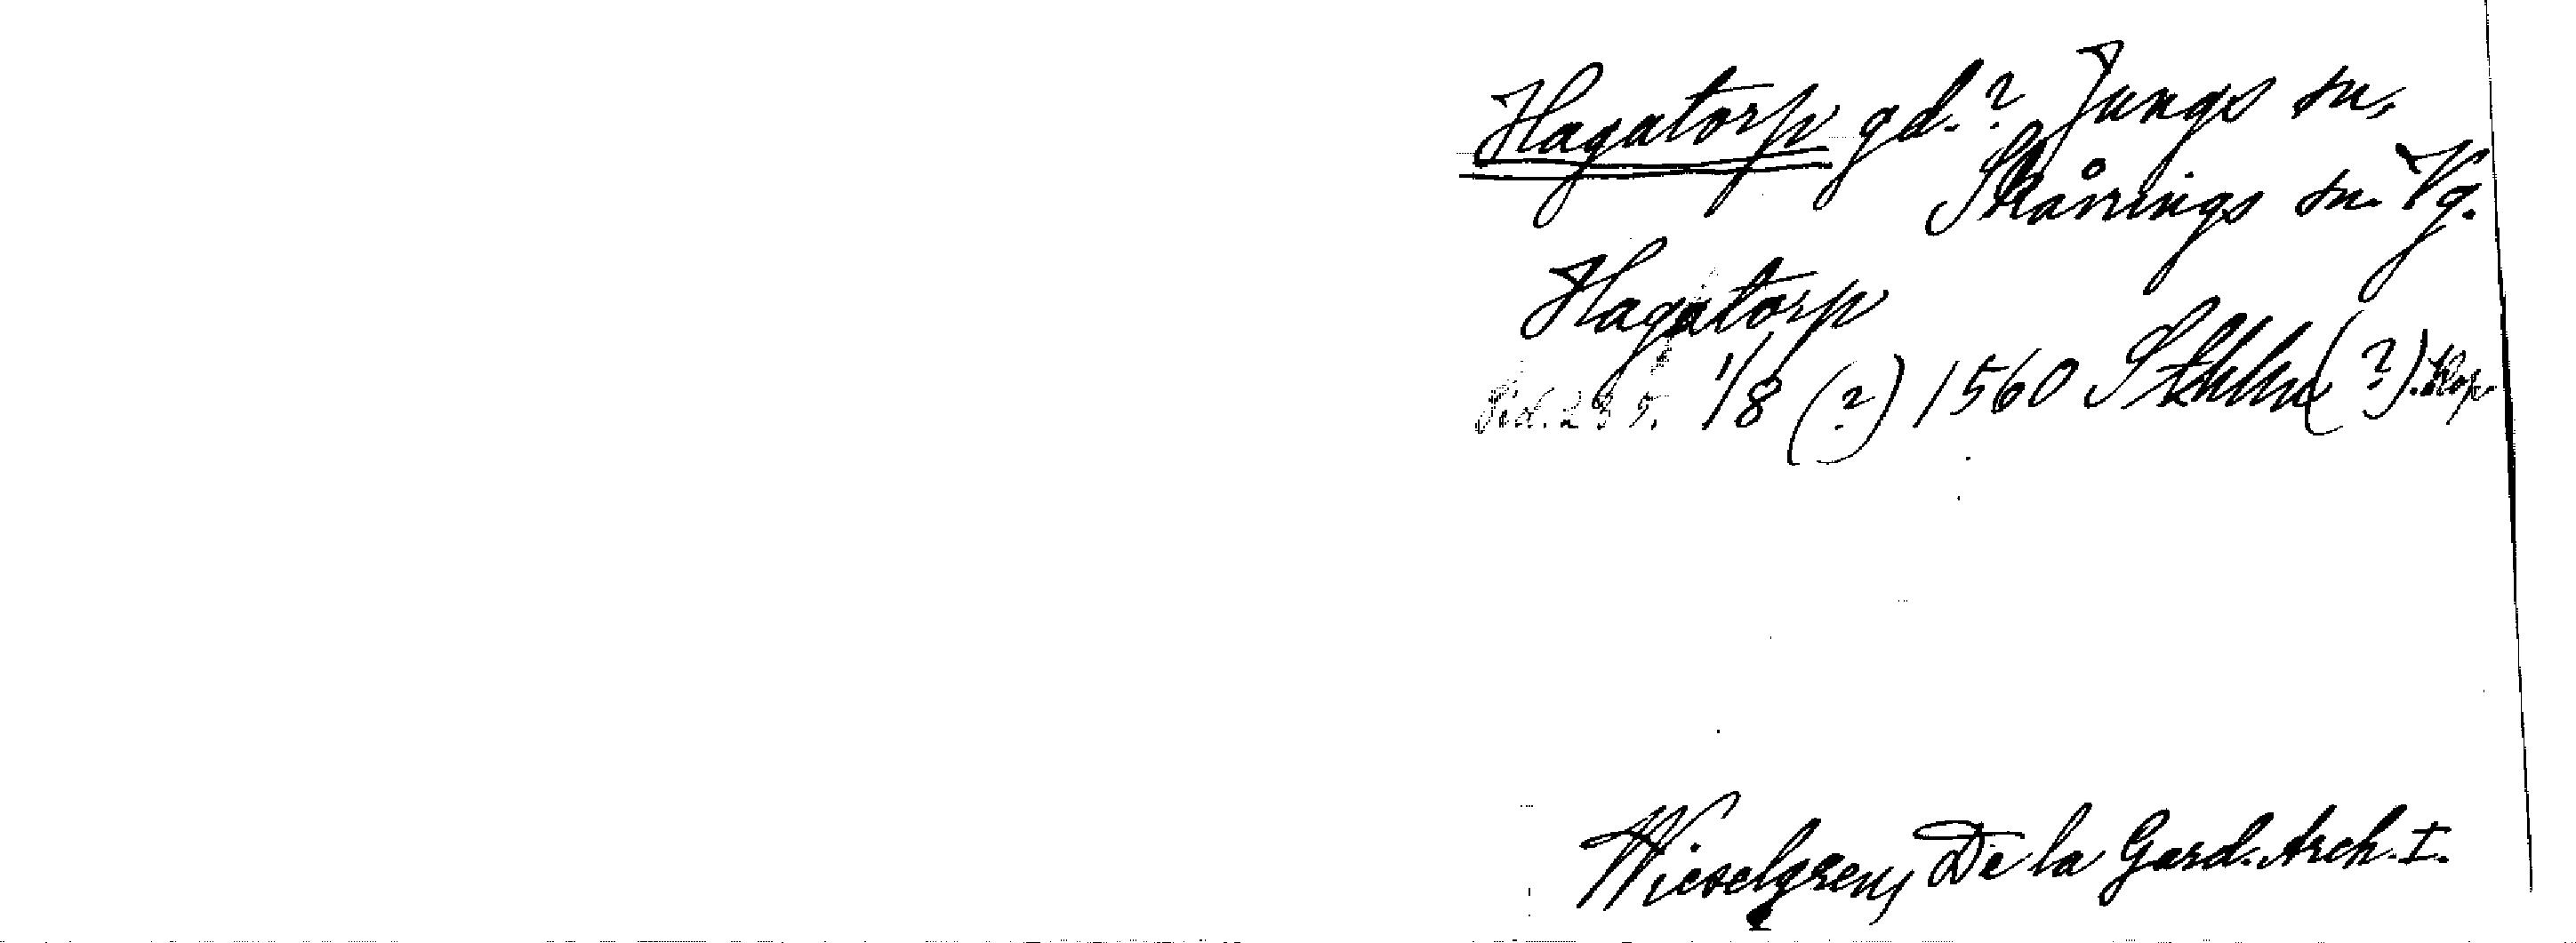 Hagatorp gd.? Jungs sn,
Skånings sn. Vg.
Hagatorp
Sid. 235. 1/8 (?) 1560 Sthlm (?). Kop.
Wieselgren, De la Gard. Arch. I.